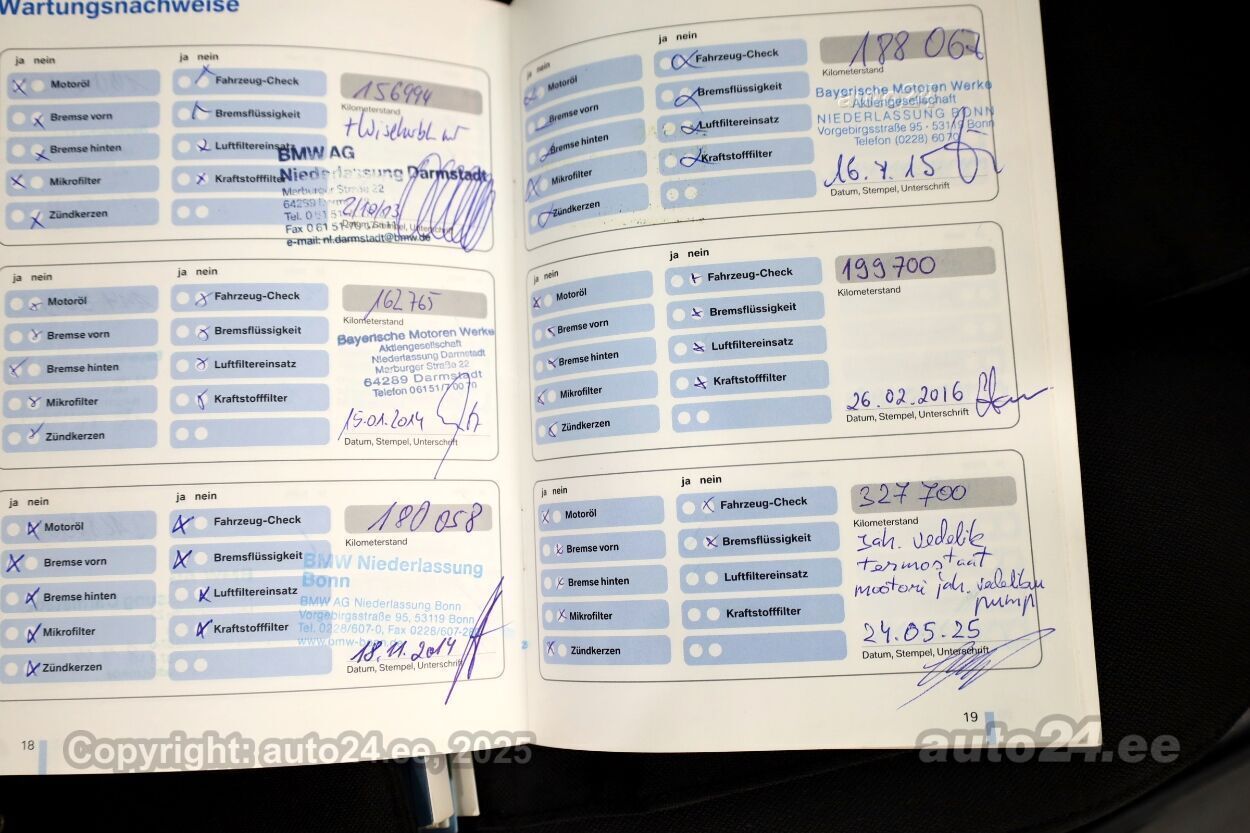 Wartungsnachweise
ja nein
ja nein
Motoröl
Fahrzeug-Check
156994
Kilometerstand
Bremse vorn
Bremsflüssigkeit
Bremse hinten
Luftfiltereinsatz
BMW AG
Mikrofilter
Kraftstofffilter
Niederlassung Darmstadt
64289
Zündkerzen
2/10/13
Datum, Stempel, Unterschrift
e-mail: nl.darmstadt@bmw.de
ja nein
ja nein
Motoröl
Fahrzeug-Check
162765
Kilometerstand
Bremse vorn
Bremsflüssigkeit
Bayerische Motoren Werke
Aktiengesellschaft
Niederlassung Darmstadt
Bremse hinten
Luftfiltereinsatz
Straße 22
64289 Darmstadt
Mikrofilter
Kraftstofffilter
Telefon 06151/
Zündkerzen
15.01.2014
Datum, Stempel, Unterschrift
ja nein
ja nein
Motoröl
Fahrzeug-Check
180 058
Kilometerstand
Bremse vorn
Bremsflüssigkeit
BMW Niederlassung
Bonn
Bremse hinten
Luftfiltereinsatz
BMW AG Niederlassung Bonn
Vorgebirgsstraße 95, 53119 Bonn
Mikrofilter
Kraftstofffilter
Tel. 0228/607-0, Fax 0228/607-
Zündkerzen
18.11.2014
Datum, Stempel, Unterschrift
18
ja nein
ja nein
Motoröl
Fahrzeug-Check
188 067
Kilometerstand
Bremse vorn
Bremsflüssigkeit
Bayerische Motoren Werke
Aktiengesellschaft
Bremse hinten
Luftfiltereinsatz
NIEDERLASSUNG BONN
Vorgebirgsstraße 95 · 53119 Bonn
Telefon (0228) 60
Mikrofilter
Kraftstofffilter
15
Zündkerzen
Datum, Stempel, Unterschrift
ja nein
ja nein
Motoröl
Fahrzeug-Check
199700
Kilometerstand
Bremse vorn
Bremsflüssigkeit
Bremse hinten
Luftfiltereinsatz
Mikrofilter
Kraftstofffilter
26.02.2016
Zündkerzen
Datum, Stempel, Unterschrift
ja nein
ja nein
Motoröl
Fahrzeug-Check
327 700
Kilometerstand
Bremse vorn
Bremsflüssigkeit
jah. vedelik
termostaat
Bremse hinten
Luftfiltereinsatz
mootori jah. vedeliku
pump
Mikrofilter
Kraftstofffilter
24.05.25
Zündkerzen
Datum, Stempel, Unterschrift
19
Copyright: auto24.ee, 2025
auto24.ee